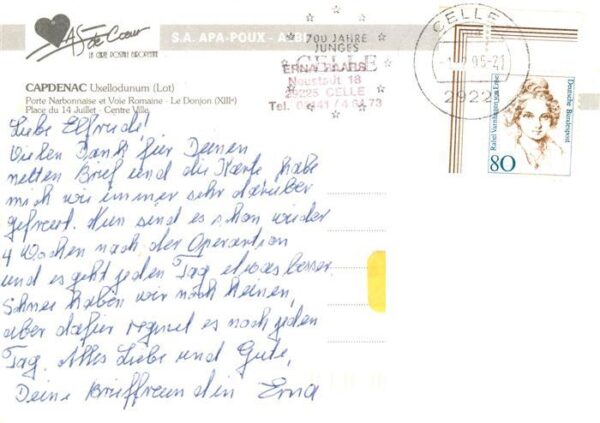 AS de Cœur
LA CARTE POSTALE EUROPÉENNE
S.A. APA-POUX - ALBI
CAPDENAC Uxellodunum (Lot)
Porte Narbonnaise et Voie Romaine - Le Donjon (XIIIᵉ)
Place du 14 Juillet - Centre Ville
700 JAHRE
JUNGES
CELLE
ERNA
Neustadt 18
29225 CELLE
Tel. 05141 / 4 84 73
CELLE
2922
Deutsche Bundespost
Rahel Varnhagen von Ense
80
Liebe Elfriede!
Vielen Dank für Deinen
netten Brief und die Karte habe
mich wie immer sehr darüber
gefreut. Nun sind es schon wieder
4 Wochen nach der Operation
und es geht jeden Tag etwas besser.
Schnee haben wir noch keinen,
aber dafür regnet es noch jeden
Tag. Alles Liebe und Gute,
Deine Brieffreundin Erna